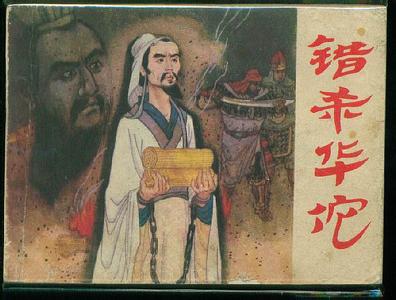 错杀华佗